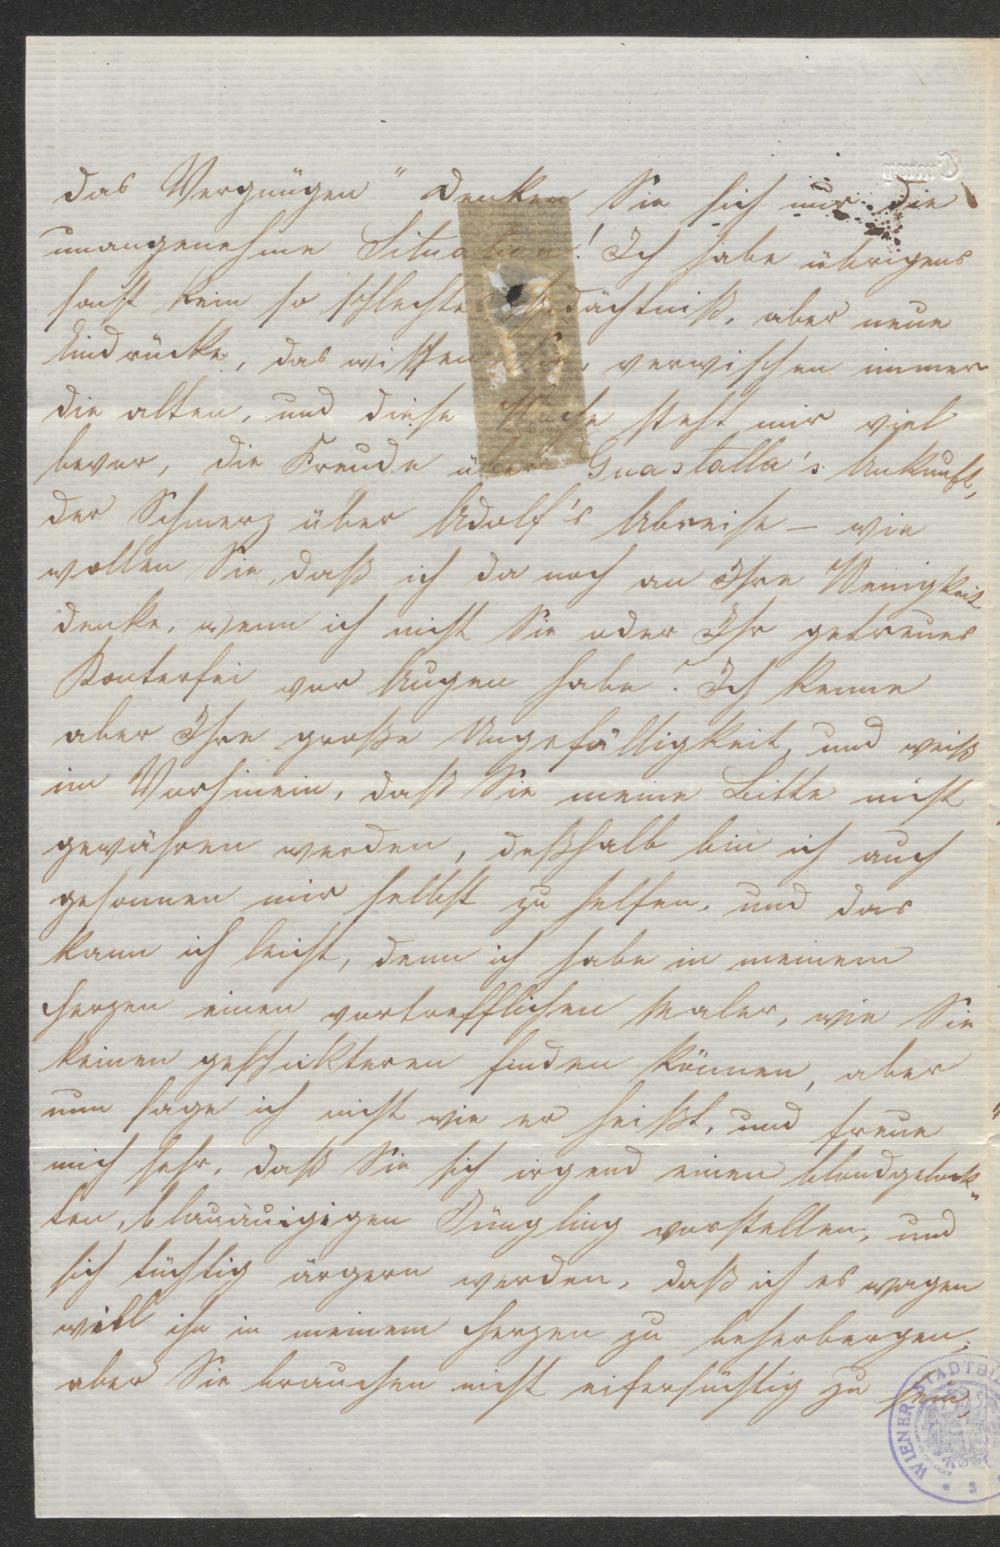 das Vergnügen" Denken Sie sich nur die
unangenehme Situation! Ich habe übrigens
sonst kein so schlechtes Gedächtniß, aber neue
Eindrücke, das wissen Sie, verwischen immer
die alten, und diese Woche steht mir viel
bevor, die Freude über Guastalla's Ankunft,
der Schmerz über Adolf's Abreise – wie
wollen Sie daß ich da noch an Ihre Wenigkeit
denke, wenn ich nicht Sie oder Ihr getreues
Konterfei vor Augen habe? Ich kenne
aber Ihre große Ungefälligkeit, und weiß
im Vorhinein, daß Sie meine Bitte nicht
gewähren werden, deßhalb bin ich auch
gesonnen mir selbst zu helfen, und das
kann ich leicht, denn ich habe in meinem
Herzen einen vortrefflichen Maler, wie Sie
keinen geschickteren finden können, aber
nun sage ich nicht wie er heißt, und freue
mich sehr, daß Sie sich irgend einen blondgelock-
ten, blauäuigigen Jüngling vorstellen, und
sich tüchtig ärgern werden, daß ich es wagen
will ihn in meinem Herzen zu beherbergen;
aber Sie brauchen nicht eifersüchtig zu sein,
WIENER STADTBI